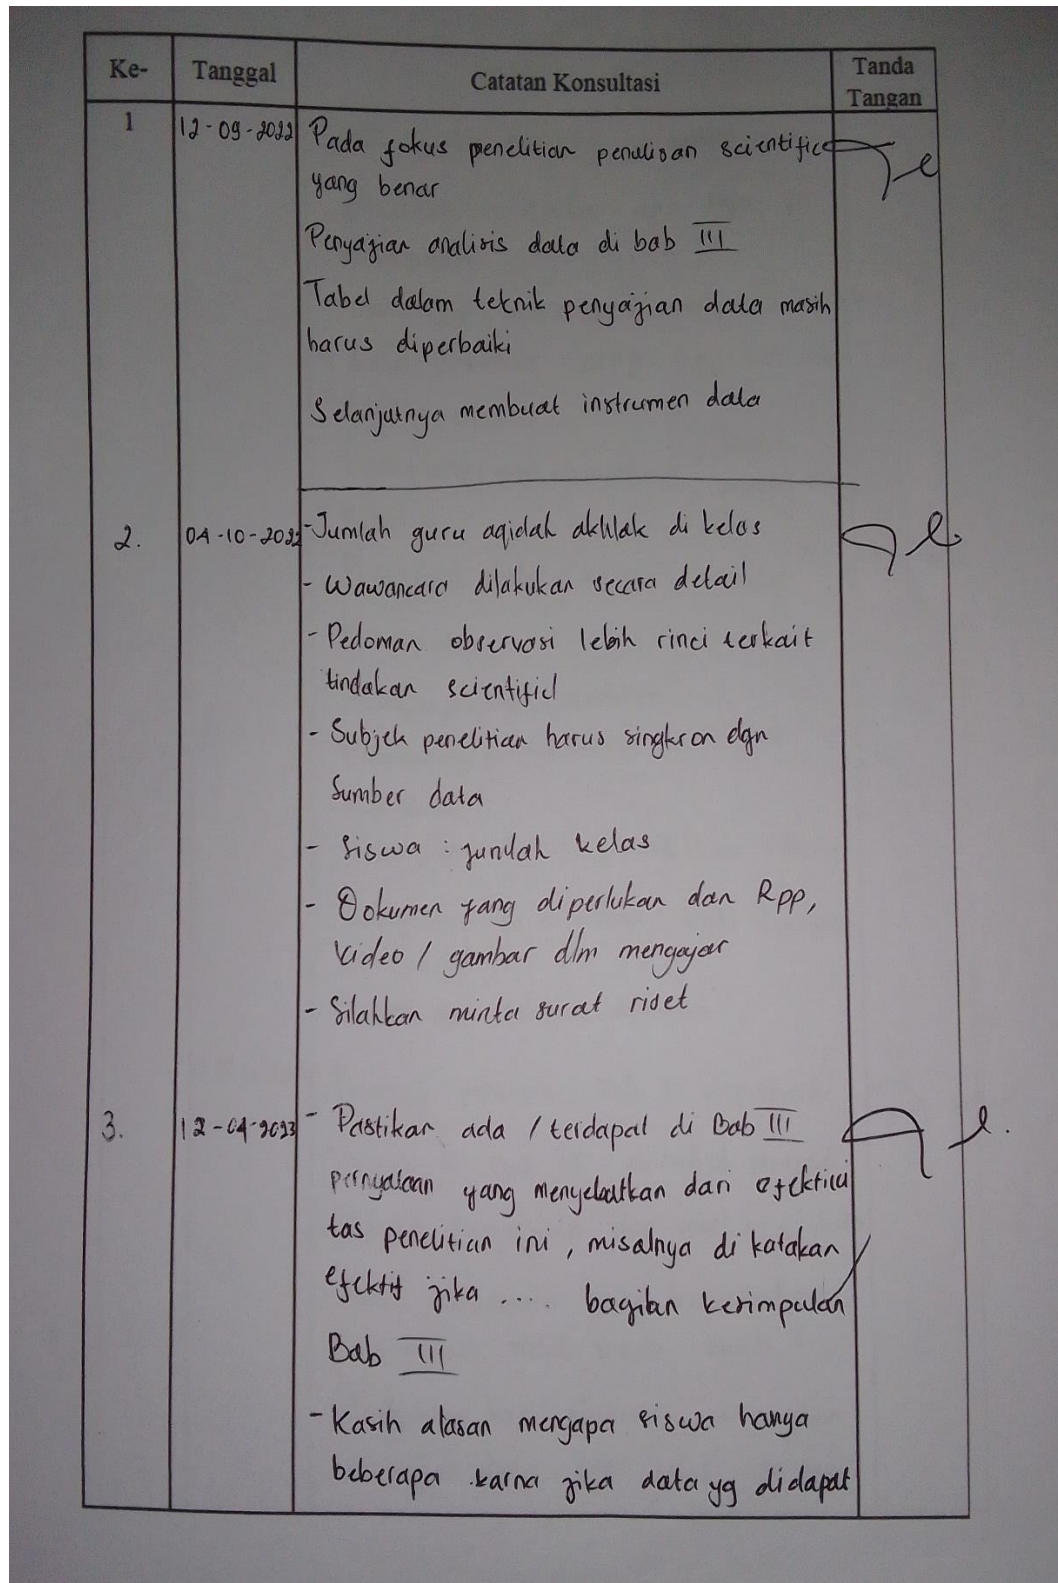 Ke- Tanggal Catatan Konsultasi Tanda Tangan
1 12-09-2022 Pada fokus penelitian penulisan scientific
yang benar
Penyajian analisis data di bab III
Tabel dalam teknik penyajian data masih
harus diperbaiki
Selanjutnya membuat instrumen data
2. 04-10-2022 - Jumlah guru aqidah akhlak di kelas
- Wawancara dilakukan secara detail
- Pedoman observasi lebih rinci terkait
tindakan scientific
- Subjek penelitian harus singkron dgn
Sumber data
- Siswa : jumlah kelas
- Dokumen yang diperlukan dan Rpp,
Video / gambar dlm mengajar
- Silahkan minta surat riset
3. 12-04-2023 - Pastikan ada / terdapat di Bab III
pernyataan yang menyebutkan dari efektivi
tas penelitian ini, misalnya di katakan
efektif jika .... bagian kesimpulan
Bab III
- Kasih alasan mengapa siswa hanya
beberapa karna jika data yg didapat